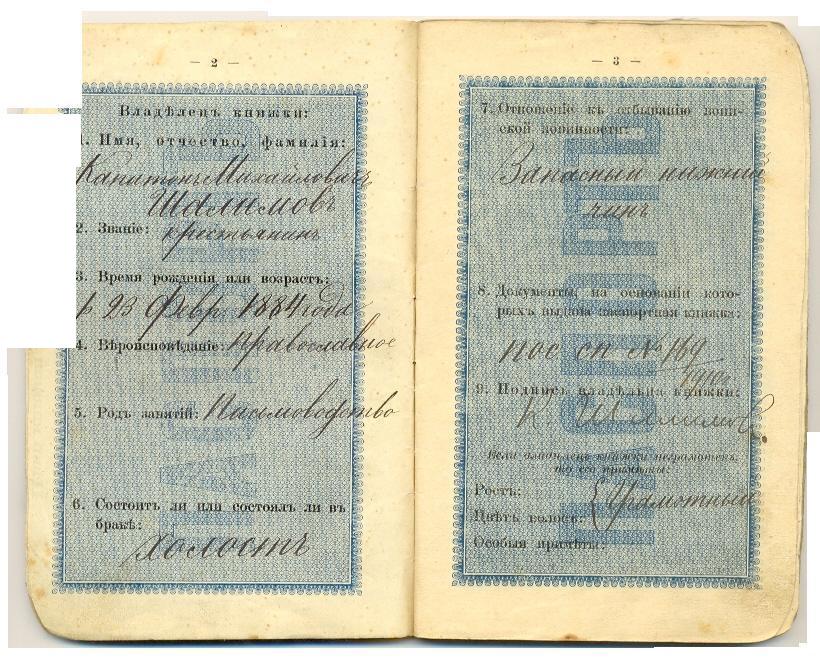 — 2 —
Владѣлецъ книжки:
1. Имя, отчество, фамилія:
Капитонъ Михайловичъ
Шалимовъ
2. Званіе: крестьянинъ
3. Время рожденія или возрастъ:
р 23 февр 1884 года
4. Вѣроисповѣданіе: православное
5. Родъ занятій: Письмоводство
6. Состоитъ ли или состоялъ ли въ
бракѣ:
холостъ
ПАСПОРТЪ
— 3 —
7. Отношеніе къ отбыванію воин-
ской повинности:
Запасный нижній
чинъ
8. Документы, на основаніи кото-
рыхъ выдана паспортная книжка:
пос сп № 169
1910г
9. Подпись владѣльца книжки:
К. Шалимовъ
Если владѣлецъ книжки неграмотенъ,
то его примѣты:
Ростъ:
Грамотный
Цвѣтъ волосъ:
Особыя примѣты:
ПАСПОРТЪ